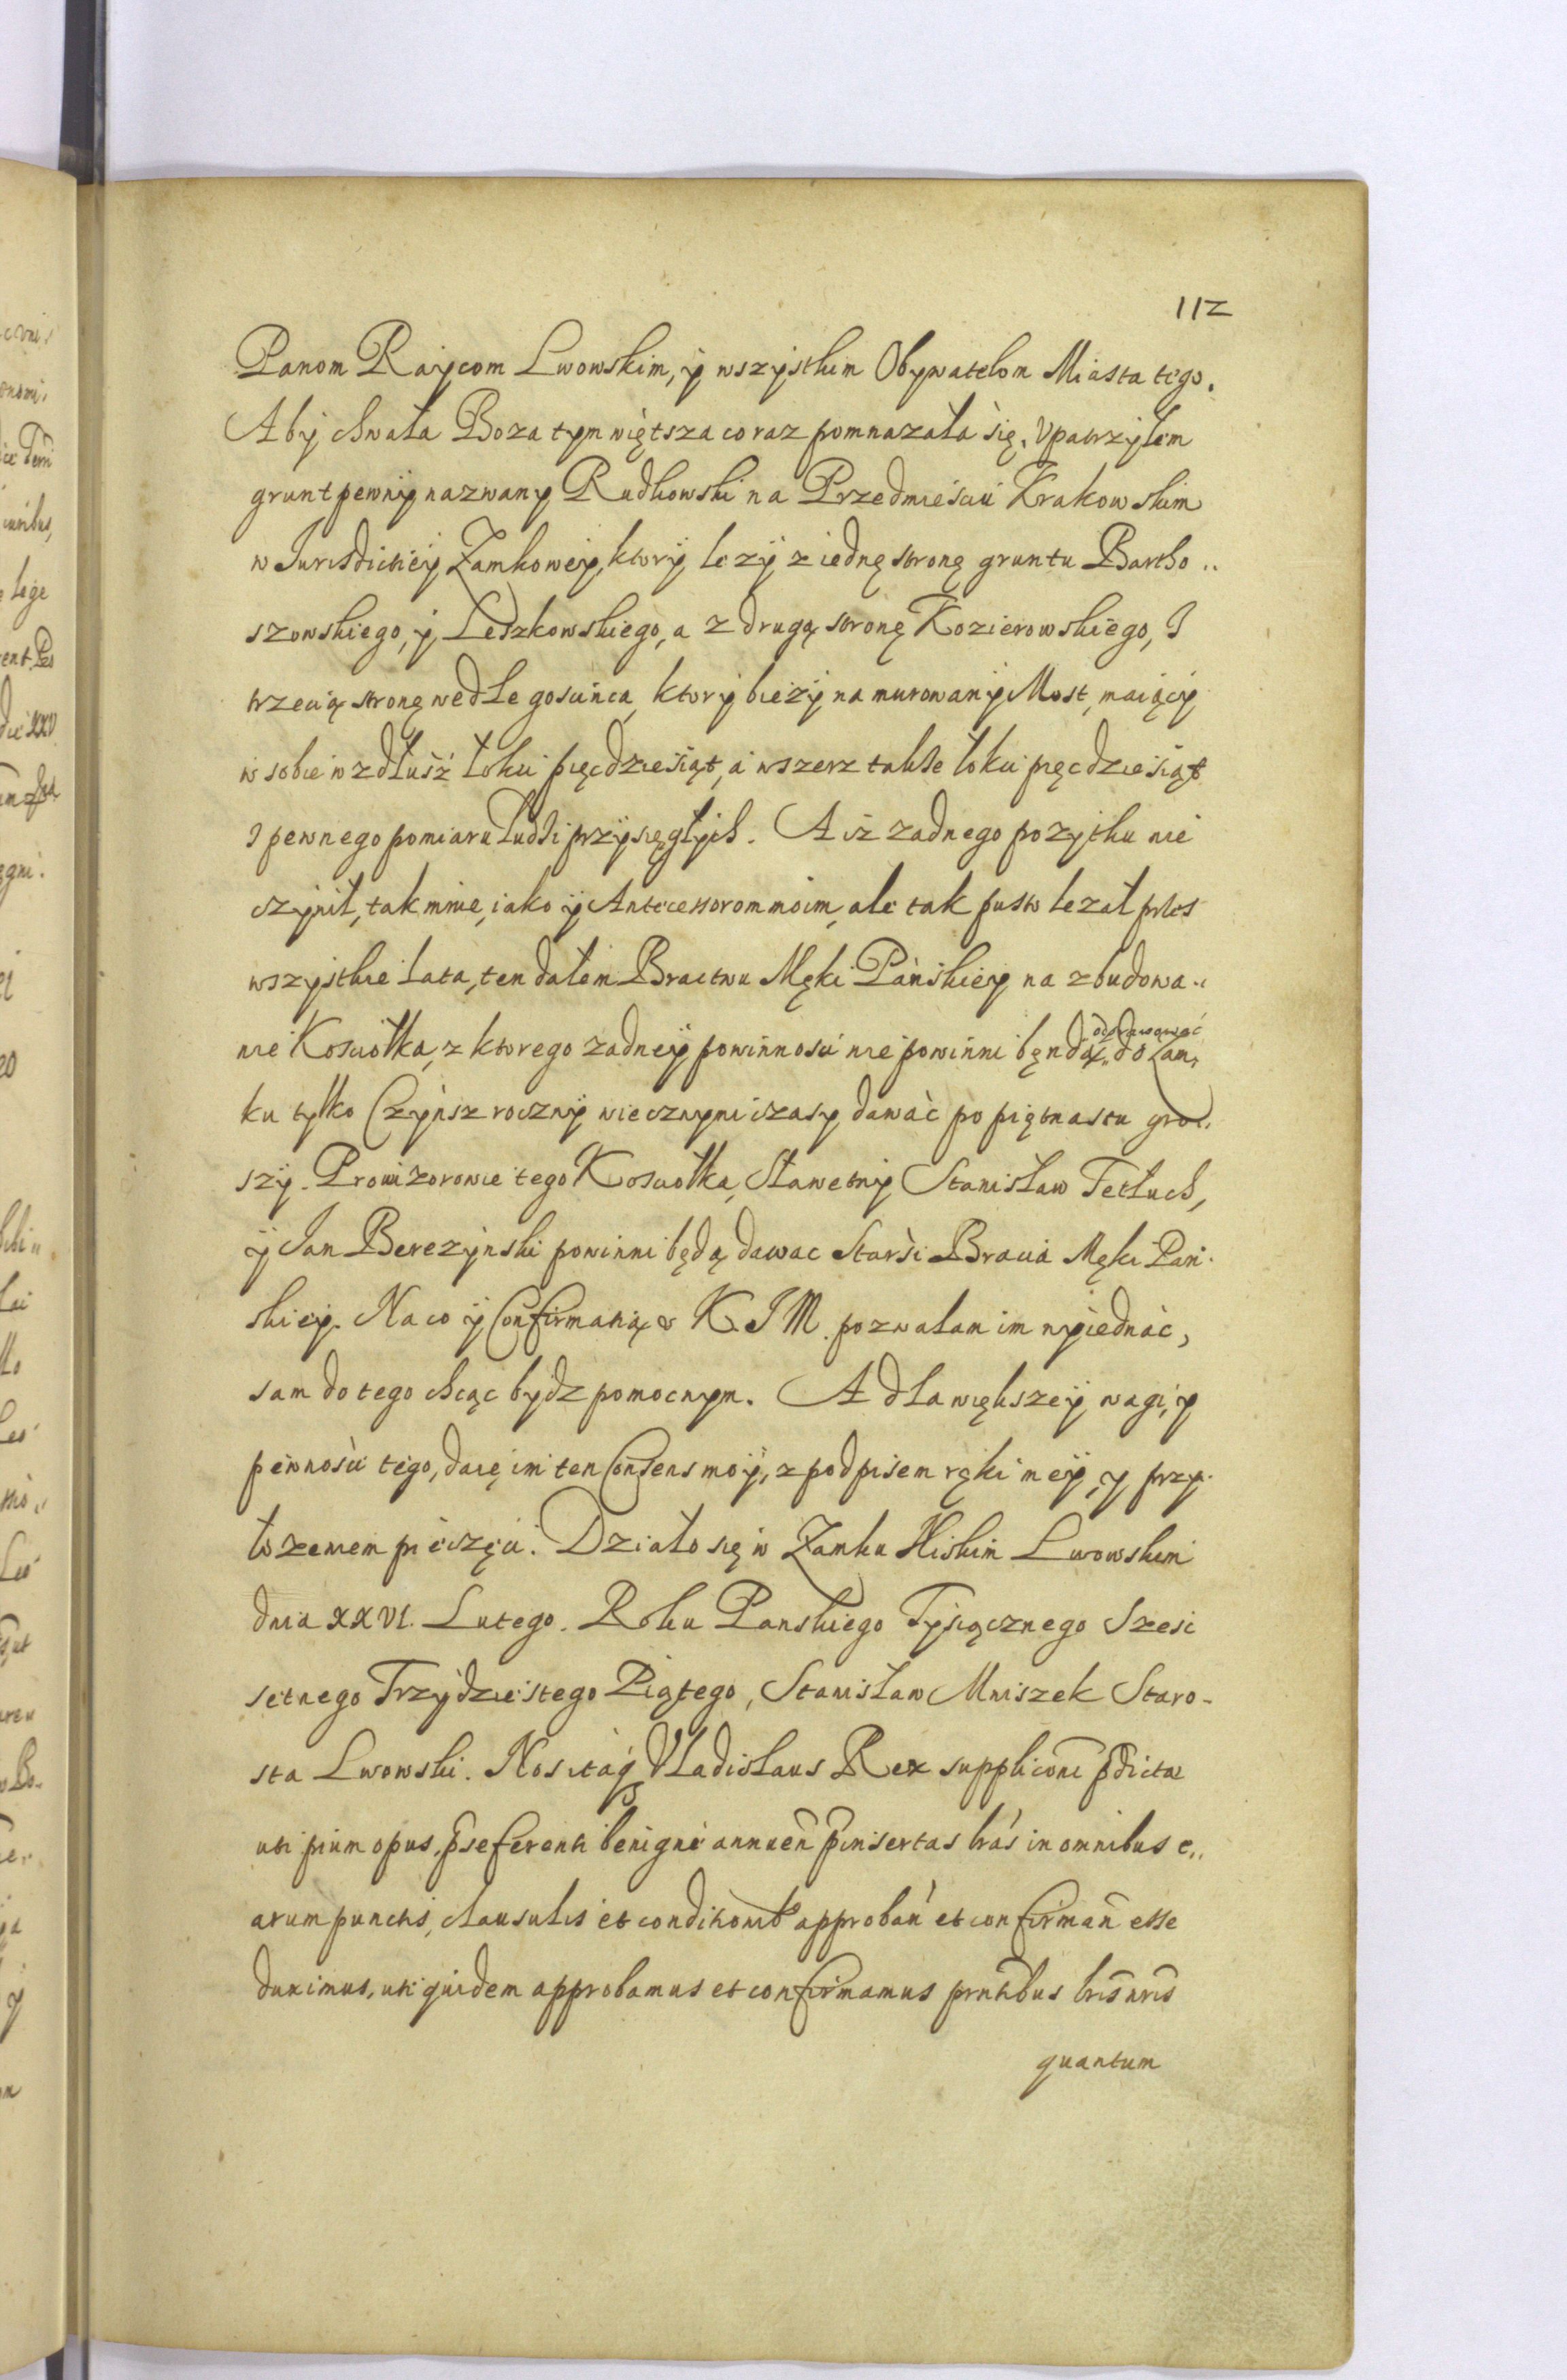 112
Panom Raÿcom Lwowskim, ÿ wszÿstkim Obÿwatelom Miasta tego.
Abÿ chwała Boza tym więtsza coraz pomnazała się. Vpatrzÿłem
grunt pewnÿ nazwanÿ Rudkowski na Przedmieściu Krakowskim
w Iurisdictieÿ Zamkoweÿ, ktorÿ lezÿ z iednę stronę gruntu Bartho..
szowskiego, ÿ Leszkowskiego, a z drugą stronę Kozierowskiego, I
trzecią stronę wedle goscińca, ktorÿ biezÿ na murowanÿ Most, maiącÿ
w sobie wzdłusz łokci pięcdziesiąt, a wszerz takze łokci pięcdziesiąt
I pewnego pomiaru ludzi przÿsięgłÿch. A isz zadnego pozÿtku nie
czÿnił, tak mnie, iako ÿ Antecessorom moim, ale tak pusto lezał przes
wszÿstkie lata, ten dałem Bractwu Męki Pańskieÿ na zbudowa..
nie Kosciołka, z ktorego zadneÿ powinnosci nie powinni będą odprawować do Zam,
ku tylko Czÿnsz rocznÿ wiecznymi czasÿ dawać po piętnastu gro..
szÿ. Prowizorowie tego Kosciołka, Sławetnÿ Stanisław Tetluch,
ÿ Ian Berezÿnski powinni będą dawac Starsi Bracia Męki Pań.
skieÿ. Na co ÿ Confirmatią v K. I M. pozwalam im wÿiednać,
sam do tego chcąc bydz pomocnÿm. A dla większeÿ wagi, ÿ
pewnosci tego, daię im ten Consens moÿ, z podpisem ręki meÿ, ÿ przÿ.
łozeniem pieczęci. Działo się w Zamku Niskim Lwowskim
dnia XXVI. Lutego. Roku Panskiego Tÿsiącznego Szesc
setnego Trzÿdziestego Piątego, Stanisław Mniszek Staro-
sta Lwowski. Nos itaq Vladislaus Rex suppliconi pdictae
uti pium opus, pseferenti benigne annuen pinsertas lras in omnibus e..
arum punctis, clausulis et conditionib approban et confirman esse
duximus, uti quidem approbamus et confirmamus prntibus lris nris
quantum